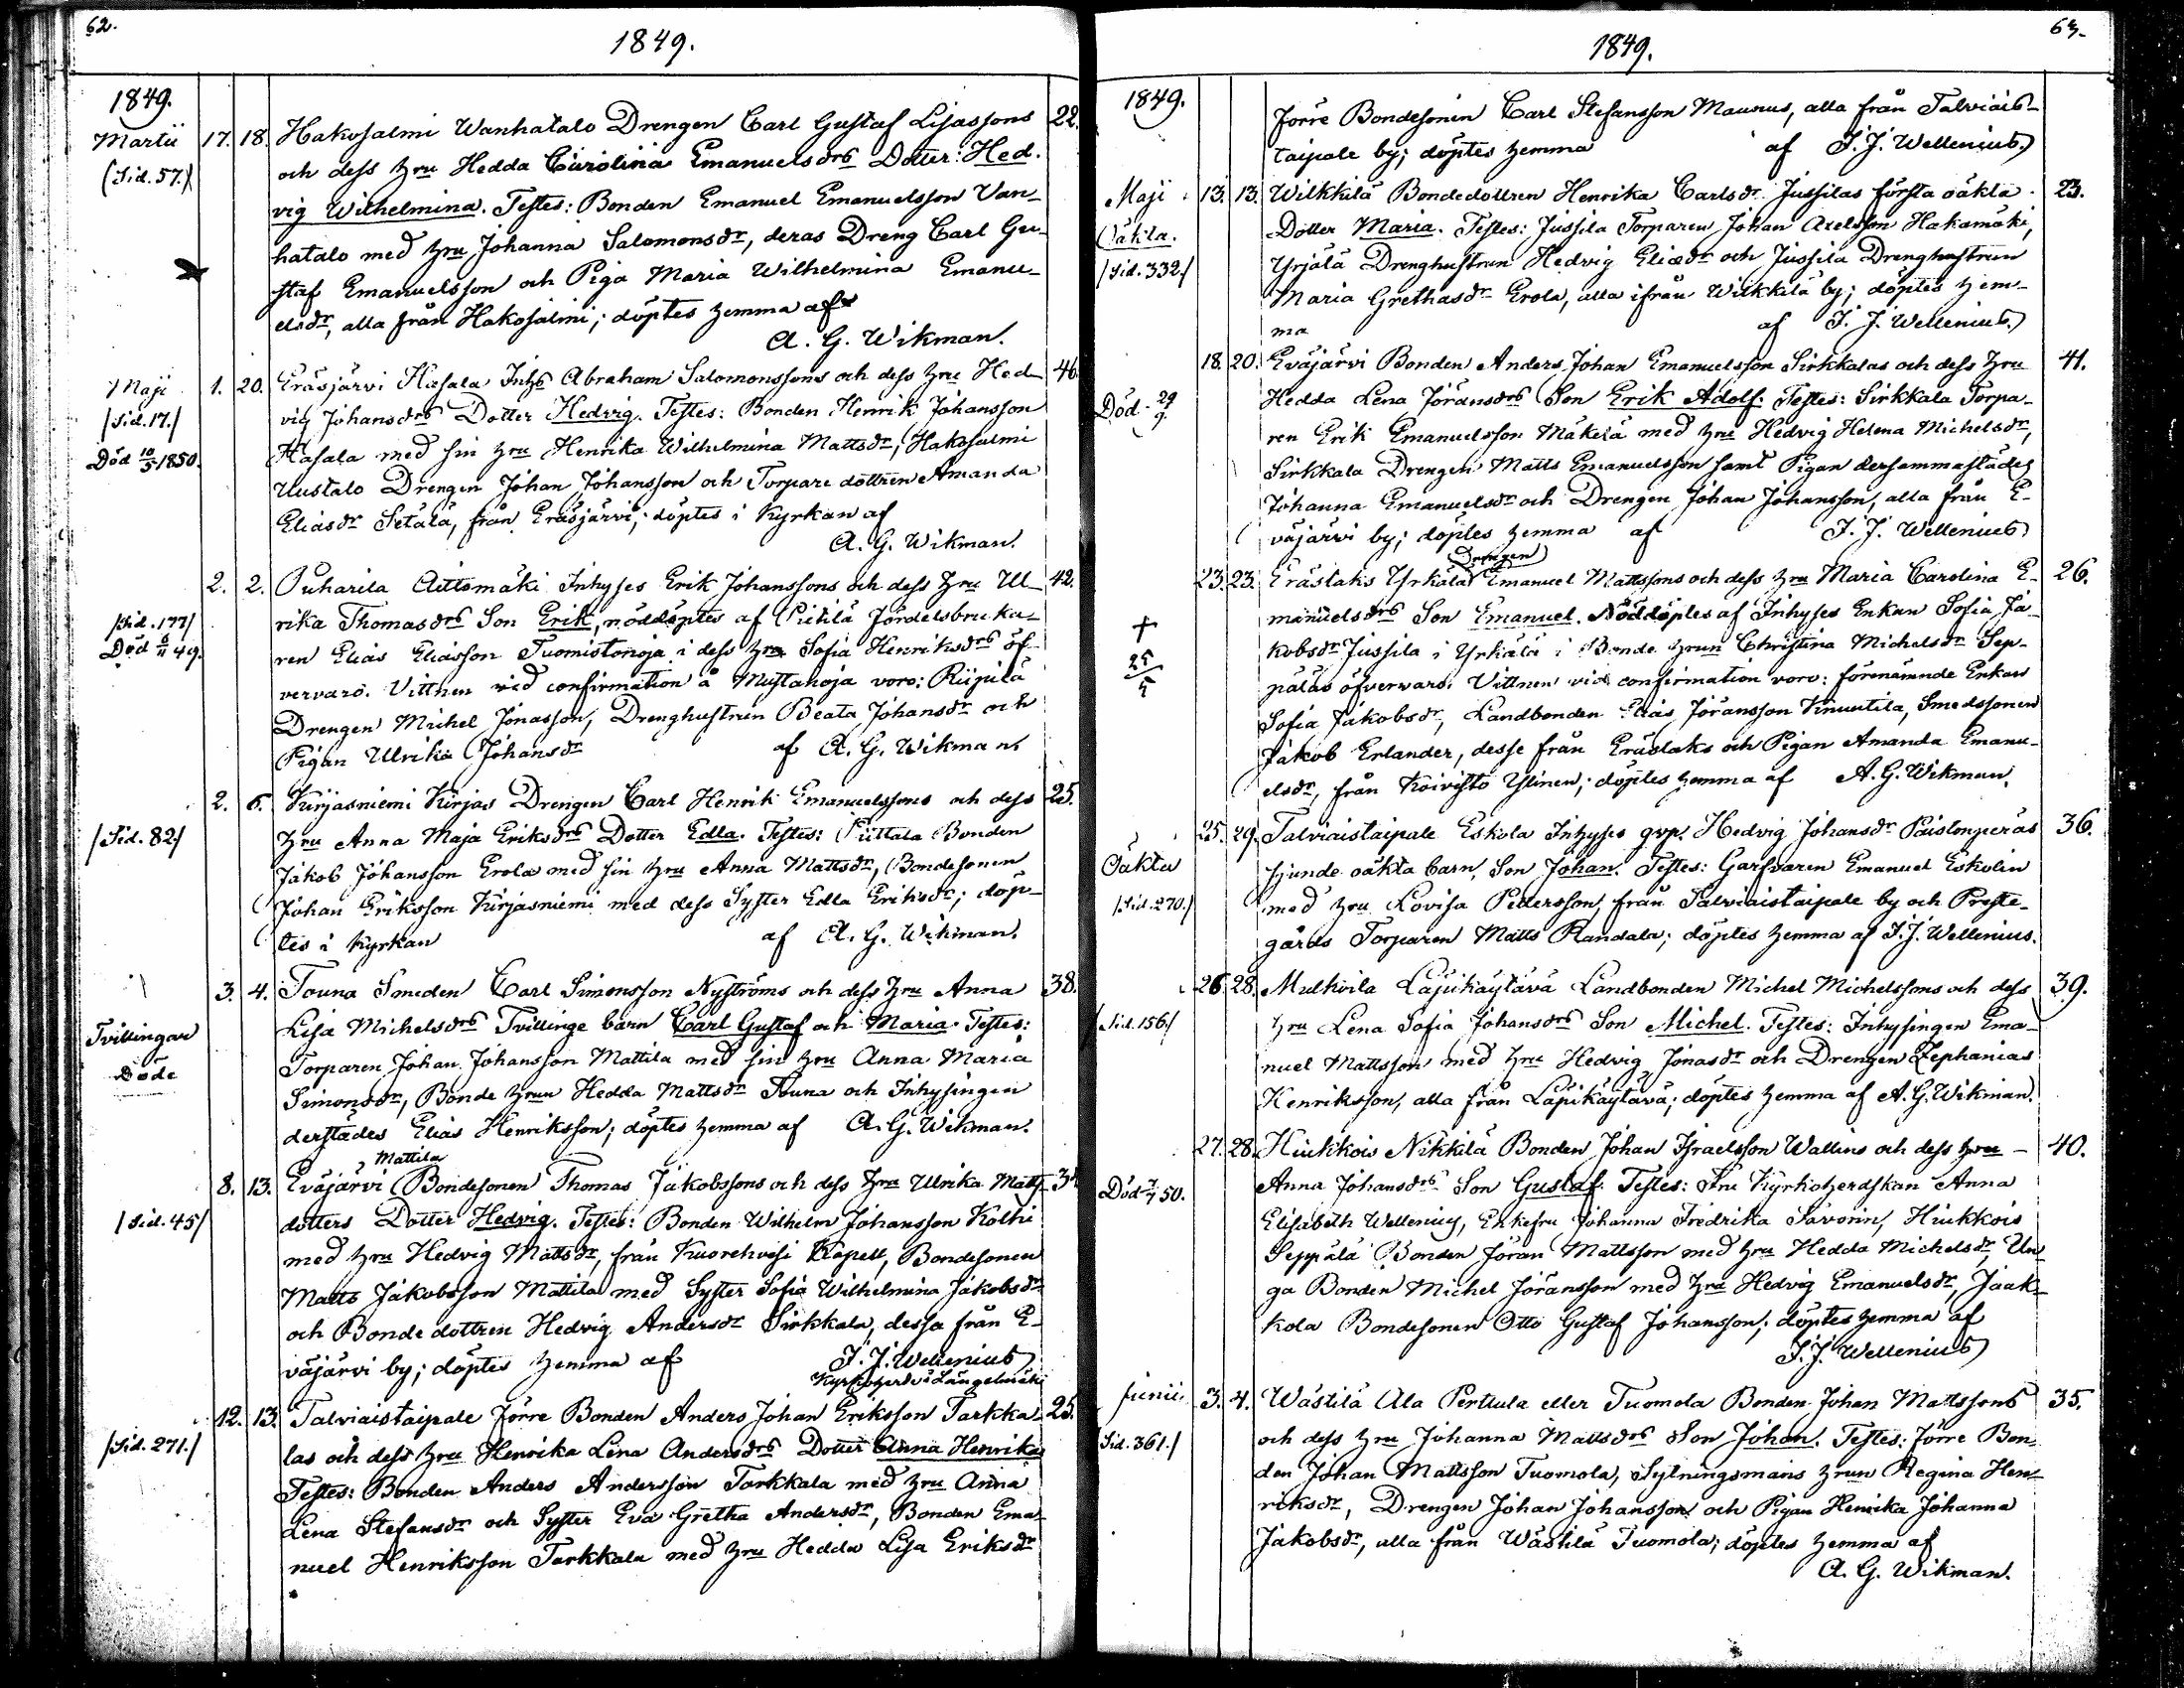 62.
1849.
1849.
Martii 17. 18. Hakosalmi Wanhatalo Drengen Carl Gustaf Lisassons 22.
(Sid. 57.) och dess hru Hedda Carolina Emanuelsdrs Dotter: Hed-
vig Wilhelmina. Testes: Bonden Emanuel Emanuelsson Van-
hatalo med hru Johanna Salomonsdr, deras Dreng Carl Gu-
staf Emanuelsson och Piga Maria Wilhelmina Emanu-
elsdr, alla från Hakosalmi; döptes hemma af
A. G. Wikman.
Maji 1. 20. Eräsjärvi Hasala Inhs Abraham Salomonssons och dess hru Hed- 46.
/Sid. 17./ vig Johansdrs Dotter Hedvig. Testes: Bonden Henrik Johansson
Död 10/5 1850. Hasala med sin hru Henrika Wilhelmina Mattsdr, Hakosalmi
Uustalo Drengen Johan Johansson och Torpare dottren Amanda
Eliasdr Setälä, från Eräsjärvi; döptes i Kyrkan af
A. G. Wikman.
2. 2. Puharila Aittomäki Inhyses Erik Johanssons och dess hru Ul- 42.
/Sid. 177/ rika Thomasdrs Son Erik, nöddöptes af Pietilä Fördelsbruka-
Död 6/11 49. ren Elias Eliasson Tuomistonoja i dess hru Sofia Henriksdrs öf-
vervaro. Vittnen vid confirmation å Mustanoja voro: Riipilä
Drengen Michel Jonasson, Drenghustrun Beata Johansdr och
Pigan Ulrika Johansdr af A. G. Wikman.
2. 6. Kirjasniemi Kirjas Drengen Carl Henrik Emanuelssons och dess 25.
/Sid. 82/ hru Anna Maja Eriksdrs Dotter Edla. Testes: Bonden
Jakob Johansson Erola med sin hru Anna Mattsdr, Bondesonen
Johan Eriksson Kirjasniemi med dess Syster Edla Eriksdr; döp-
tes i Kyrkan af A. G. Wikman.
3. 4. Touna Smeden Carl Simonsson Nyströms och dess hru Anna 38.
Lisa Michelsdrs Tvillinge barn Carl Gustaf och Maria. Testes:
Tvillingar Torparen Johan Johansson Mattila med sin hru Anna Maria
Döde Simonsdr, Bonde hrun Hedda Mattsdr Touna och Inhysingen
derstädes Elias Henriksson; döptes hemma af A. G. Wikman.
Mattila
8. 13. Eväjärvi Bondesonen Thomas Jakobssons och dess hru Ulrika Matts- 34
/Sid. 45/ dotters Dotter Hedvig. Testes: Bonden Wilhelm Johansson Kolhi
med hru Hedvig Mattsdr, från Kuorehvesi Kapell, Bondesonen
Matts Jakobsson Mattila med Syster Sofia Wilhelmina Jakobsdr
och Bonde dottren Hedvig Andersdr Sirkkala, dessa från E-
väjärvi by; döptes hemma af J. J. Wellenius
Kyrkoherde i Längelmäki
12. 13. Talviaistaipale Förre Bonden Anders Johan Eriksson Tarkka- 25.
/Sid. 271./ las och dess hru Henrika Lena Andersdrs Dotter Anna Henrika
Testes: Bonden Anders Andersson Tarkkala med hru Anna
Lena Stefansdr och Syster Eva Gretha Andersdr, Bonden Ema-
nuel Henriksson Tarkkala med hru Hedda Lisa Eriksdr
63.
1849.
1849.
förre Bondesonen Carl Stefansson Maunus, alla från Talviais-
taipale by; döptes hemma af J. J. Wellenius.
Maji 13. 13. Wilkkilä Bondedottren Henrika Carlsdr Jussilas första oäkta 23.
Oäkta. Dotter Maria. Testes: Jussila Torparen Johan Axelsson Hakamäki,
/Sid. 332./ Yrjälä Drenghustrun Hedvig Eliedr och Jussila Drenghustrun
Maria Grethasdr Erola, alla ifrån Wilkkilä by; döptes hem-
ma af J. J. Wellenius.
18. 20. Eväjärvi Bonden Anders Johan Emanuelsson Sirkkalas och dess hru 41.
Död 29/9. Hedda Lena Jöransdrs Son Erik Adolf. Testes: Sirkkala Torpa-
ren Erik Emanuelsson Mäkelä med hru Hedvig Helena Michelsdr,
Sirkkala Drengen Matts Emanuelsson samt Pigan dersammastädes
Johanna Emanuelsdr och Drengen Johan Johansson, alla från E-
väjärvi by; döptes hemma af J. J. Wellenius
Drengen
23. 23. Eräslaks Yrkälä Emanuel Mattssons och dess hru Maria Carolina E- 26.
manuelsdrs Son Emanuel. Nöddöptes af Inhyses Enkan Sofia Ja-
+ 25/5 kobsdr Jussila i Yrkälä i Bonde hrun Christina Michelsdr Sep-
päläs öfvervaro. Vittnen vid confirmation voro: förenämnde Enkan
Sofia Jakobsdr, Landbonden Elias Jöransson Knuutila, Smedssonen
Jakob Erlander, desse från Eräslaks och Pigan Amanda Emanu-
elsdr, från Koivisto Ylinen; döptes hemma af A. G. Wikman.
25. 29. Talviaistaipale Eskola Inhyses qvp. Hedvig Johansdr Paistonperäs 36.
Oäkta sjunde oäkta barn, Son Johan. Testes: Garfvaren Emanuel Eskolin
/Sid. 270./ med hru Lovisa Pedersson, från Talviaistaipale by och Preste-
gårds Torparen Matts Randala; döptes hemma af J. J. Wellenius.
26. 28. Mulkoila Läpikäytävä Landbonden Michel Michelssons och dess 39.
/Sid. 156./ hru Lena Sofia Johansdrs Son Michel. Testes: Inhysingen Ema-
nuel Mattsson med hru Hedvig Jonasdr och Drengen Zephanias
Henriksson, alla från Läpikäytävä; döptes hemma af A. G. Wikman.
27. 28. Hiukkois Nikkilä Bonden Johan Israelsson Wallins och dess hru - 40.
Död 7/7 50. Anna Johansdrs Son Gustaf. Testes: Fru Kyrkoherdskan Anna
Elisabeth Wellenius, Enkefru Johanna Fredrika Savonin, Hiukkois
Seppälä Bonden Jöran Mattsson med hru Hedda Michelsdr, Un-
ga Bonden Michel Jöransson med hru Hedvig Emanuelsdr, Jaak-
kola Bondesonen Otto Gustaf Johansson; döptes hemma af
J. J. Wellenius
Junii 3. 4. Wästilä Ala Perttula eller Tuomola Bonden Johan Mattssons 35.
Sid. 361./ och dess hru Johanna Mattsdrs Son Johan. Testes: Förre Bon-
den Johan Mattsson Tuomola, Sytningsmans hrun Regina Hen-
riksdr, Drengen Johan Johansson och Pigan Henrika Johanna
Jakobsdr, alla från Wästilä Tuomola; döptes hemma af
A. G. Wikman.